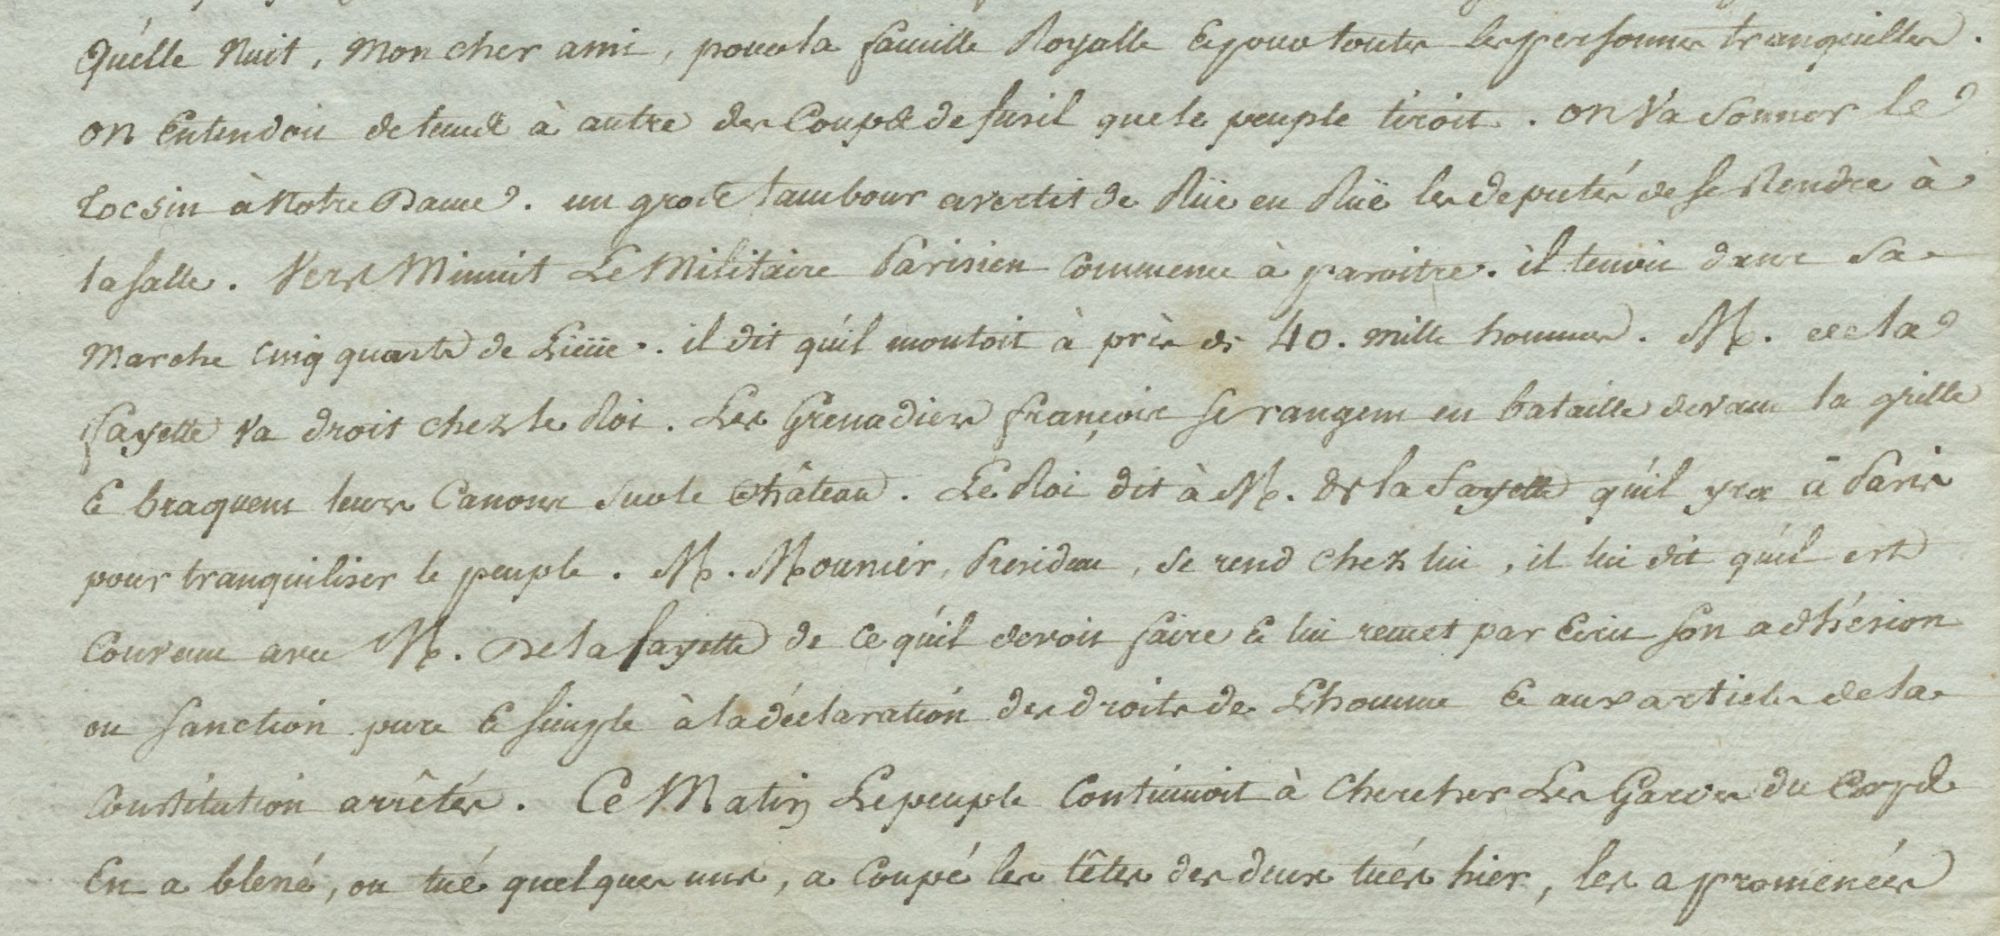 Qu'elle Nuit, Mon cher ami, pour la famille Royalle & pour toutes les personnes tranquilles.
on Entendoit de temps à autre des Coups de fusil que le peuple tiroit. on Va Sonner le
Tocsin à Notre Dame. un gros tambour avertit de Rüe en Rüe les députés de se Rendre à
la salle. Vers Minuit Le Militaire Parisien commence à paroitre. il tenoit dans Sa
Marche cinq quarts de Lieüe. il dit qu'il montoit à près de 40. mille hommes. M. de la
fayette va droit chez le Roi. Les Grenadiers françois se rangent en bataille devant la grille
& braquent leurs Canons sur le Château. Le Roi dit à M. de la fayette qu'il yra à Paris
pour tranquiliser le peuple. M. Mounier, President, se rend chez lui, il lui dit qu'il est
Convenu avec M. De la fayette de ce qu'il devoit faire & lui remet par Ecrit son adhésion
ou Sanction pure & simple à la déclaration des droits de L'homme & aux articles de la
Constitution arrêtés. Ce Matin Le peuple Continuoit à Chercher Les Gardes du Corps
En a blessé, ou tué quelques uns, a Coupé les têtes des deux tués hier, les a promenées